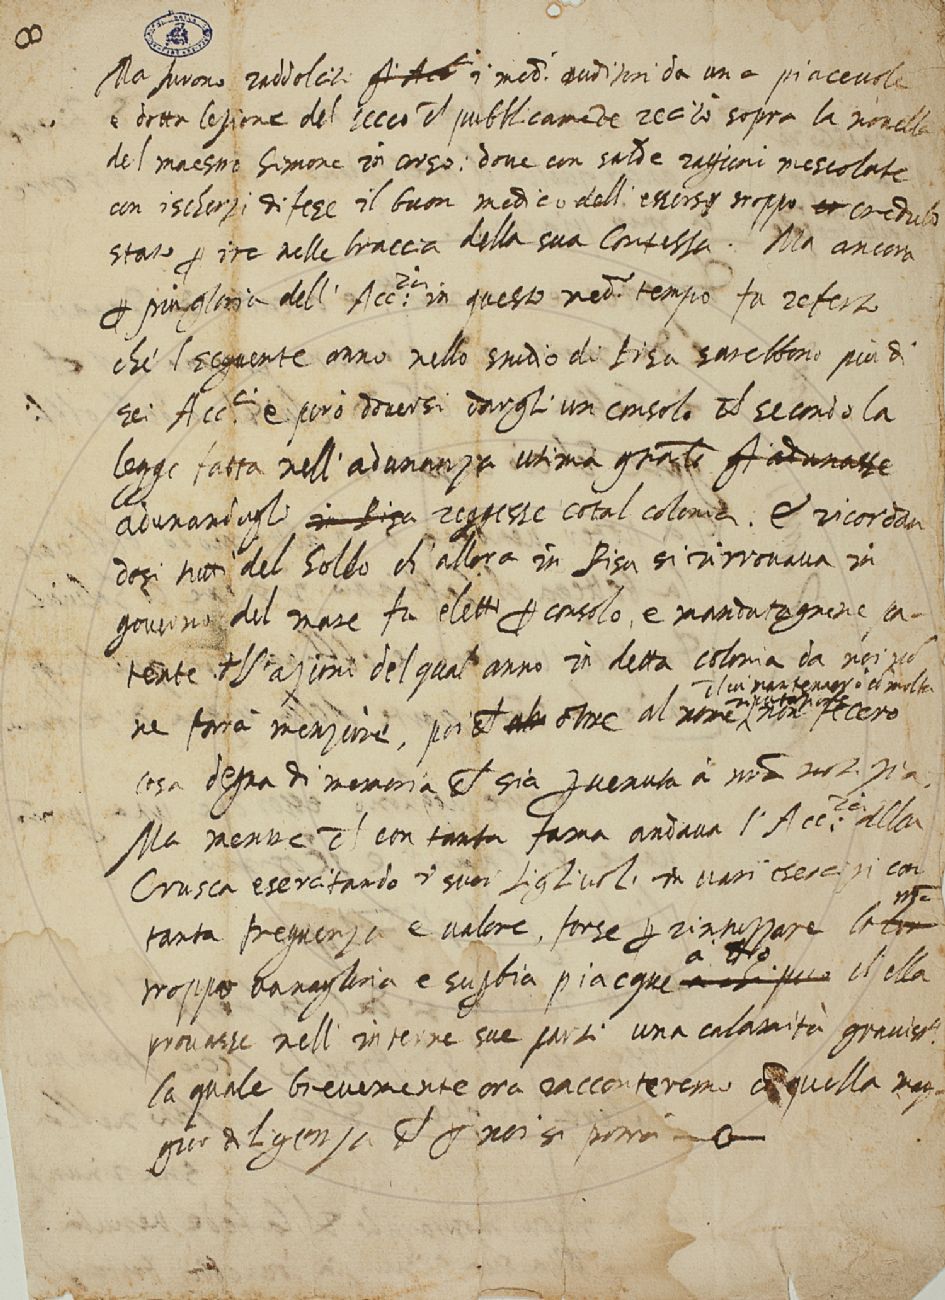 8
Ma furono raddolciti i med.i uditori da una piacevole
e dotta lezione del Secco ch'pubblicamẽte recitò sopra la novella
del maestro Simone in corso: dove con salde ragioni mescolate
con ischerzi difese il buon medico dell'essersi troppo credulo
stato p ire nelle braccia della sua Contessa. Ma ancora
p piu gloria dell'Acc.ia in questo med.o tempo fu referto
che'l seguente anno nello studio di Pisa sarebbono più di
sei Acc.ci e però doversi dargli un consolo ch'secondo la
legge fatta nell'adunanza ultima gñale si adunasse
adunandogli in Pisa reggesse cotal colonia. E ricordan
dosi tutti del Sollo ch'allora in Pisa si ritrovava in
governo del mare fu eletto p consolo, e mandatognene pa-
tente dell'azioni del qual anno in detta colonia da noi nõ
ch'vi mantenero di molta
riputatione
ne farà menzione, poi ch' oltre al nome non fecero
cosa degna di memoria ch'sia pvenuta à nr̃a notizia.
Ma mentre ch'con tanta fama andava l'Acc.ia della
Crusca esercitando i suoi figliuoli in varii esercizi con
nr̃a
tanta frequenza e valore, forse p rintuzzare la
a
troppo vanagloria e supbia piacque ch'ella
provasse nell'interne sue parti una calamità graviss.a
la quale brevemente ora racconteremo cõ quella mag-
gior diligenza ch'p noi si potrà